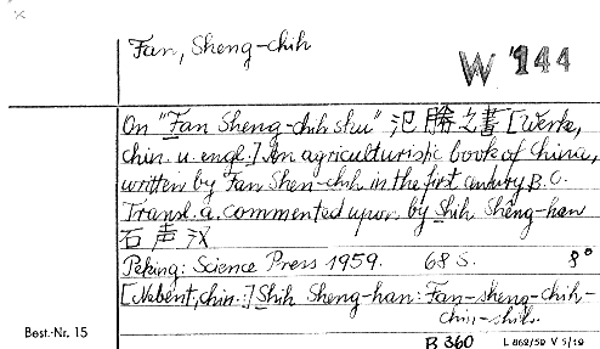 Fan, Sheng-chih
W 144
On "Fan Sheng-chih shu" 氾勝之書 [Werk,
chin. u. engl.] An agriculturistic book of China,
written by Fan Shen-chih in the first century B.C.
Transl. a. commented upon by Shih Sheng-han
石声汉
Peking: Science Press 1959. 68 S. 8°
[Nebent., chin.:] Shih Sheng-han: Fan-sheng-chih-
chin-shih.
Best.-Nr. 15
B 360 L 862/59 V 5/19